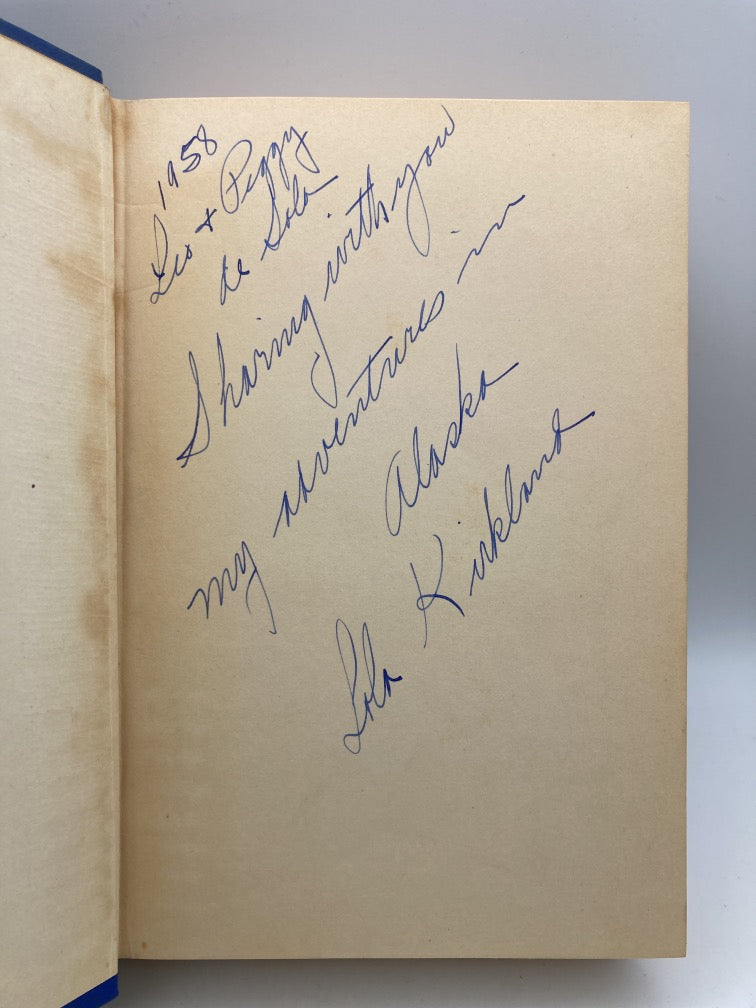 1958
Leo + Peggy
de Sola
Sharing with you
my adventures in
Alaska
Lola Kirkland